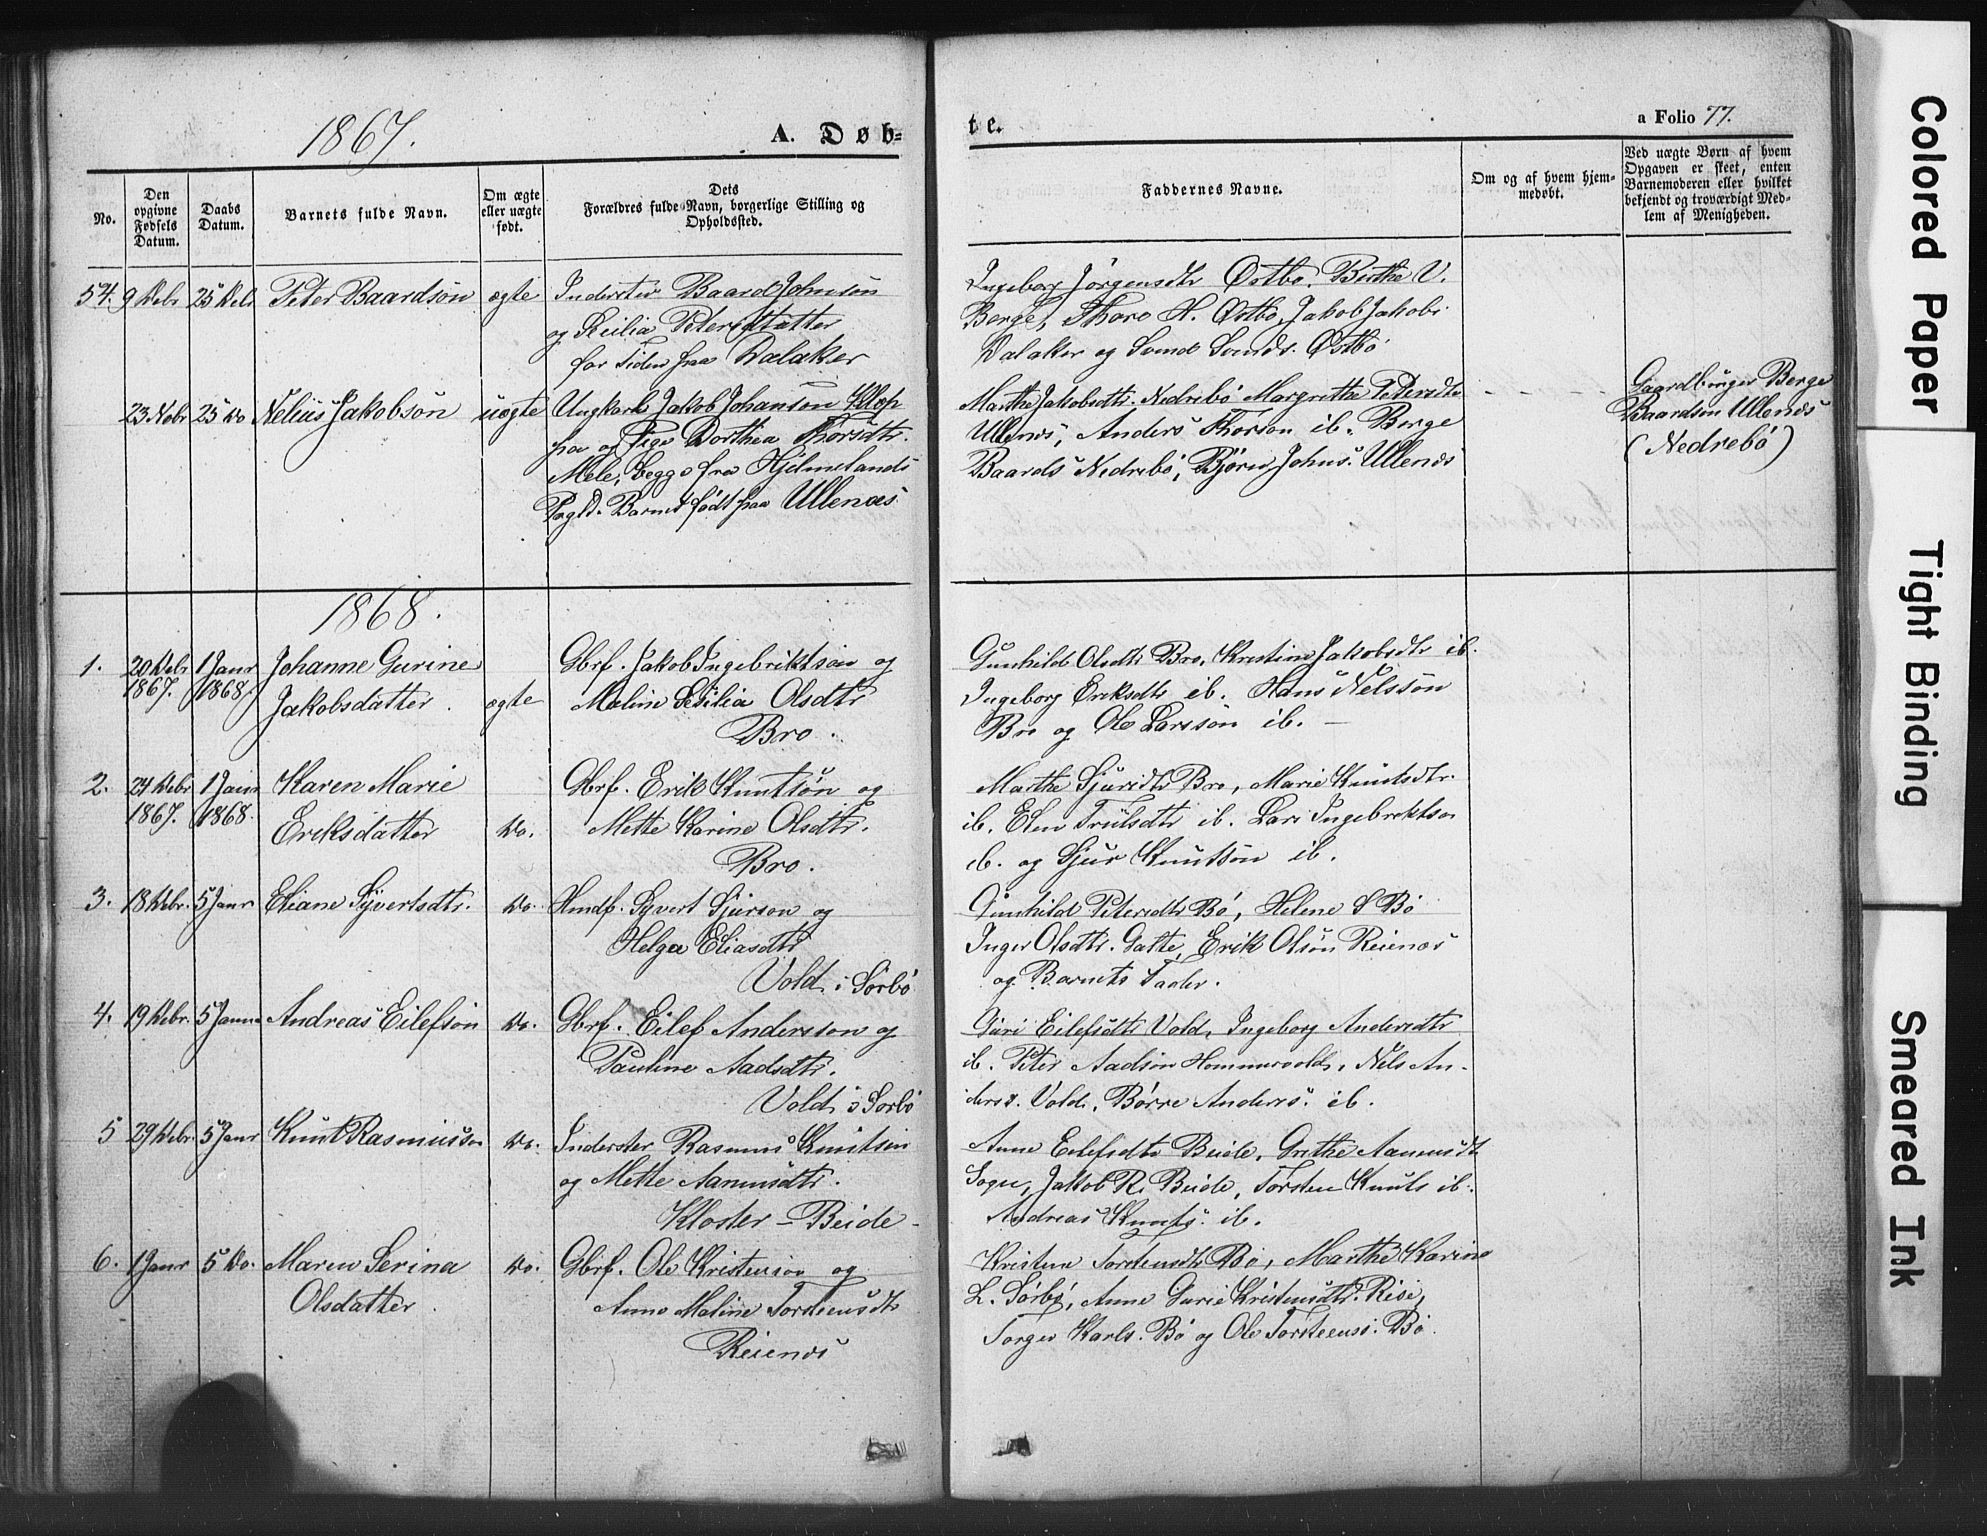 1867.
A. Døb=
te.
a Folio 77.
No.
Den opgivne Fødsels Datum.
Daabs Datum.
Barnets fulde Navn.
Om ægte eller uægte født.
Dets Forældres fulde Navn, borgerlige Stilling og Opholdssted.
Faddernes Navne.
Om og af hvem hjemmedøbt.
Ved uægte Børn af hvem Opgaven er skeet, enten Barnemoderen eller hvilket bekjendt og troværdigt Medlem af Menigheden.
54. 9 Debr 25 Deb Peter Baardsøn ægte Inderster Baard Johnsøn
og Secilia Petersdatter
for Tiden paa Dalaker
Ingeborg Jørgensdtr Østbø. Birthe V.
Berge, Thore H. Østbø, Jakob Jakobs
Dalaker og Svend Svends. Østbø
23 Nobr 25 Do Nelius Jakobsøn uægte Ungkarl Jakob Johanson Klop
paa og Pige Dorthea Thorsdtr.
Mele, begge fra Hjelmelands
Pgld. Barnet født paa Ullenæs
Marthe Jakobsdtr. Nedrebø Margrethe Petersdtr
Ullenæs, Anders Thorson ib. Berge
Baards Nedrebø, Bjørn Johns. Ullenæs
Gaardbruger Berge
Baardsen Ullenæs
(Nedrebø)
1868.
1. 20 Debr 1867. 1 Janr 1868. Johanne Gurine
Jakobsdatter. ægte
Gbrf. Jakob Ingebriktsøn og
Maline Sesilia Olsdtr
Bro.
Gunhild Olsdtr Bro, Kristine Jakobsdtr ib.
Ingeborg Eriksdtr ib. Hans Nelssøn
Bro og Ole Larssøn ib. –
2. 24 Debr 1867. 1 Janr 1868. Karen Marie
Eriksdatter Do.
Gbrf. Erik Knutsøn og
Mette Karine Olsdtr.
Bro.
Marthe Sjursdtr Bro, Marie Knutsdtr.
ib. Elen Trulsdtr ib. Lars Ingebrektsen
ib. og Sjur Knutsøn ib.
3. 18 Debr. 5 Janr Eliane Syvertsdtr. Do. Hmdf. Syvert Sjurson og
Helga Eliasdtr
Vold i Sørbø
Gunhild Petersdtr Bø, Helene S Bø
Inger Olsdtr. Gatte, Erik Olsøn Reienæs
og Barnets Fader.
4. 19 Debr. 5 Janr Andreas Eilefsøn Do. Gbrf. Eilef Andersson og
Pauline Aadsdtr.
Vold i Sørbø
Guri Eilefsdtr Vold, Ingeborg Andersdtr
ib. Peter Aadsøn Hommervold, Nels An-
ders. Vold, Børre Anders. ib.
5 29 Debr. 5 Janr Knut Rasmussøn Do. Inderster Rasmus Knutsøn
og Mette Aamundsdtr.
Kloster – Beide –
Anne Eilefsdtr Beide, Grethe Aamundsdtr
Sogn, Jakob R. Beide, Torsten Knuts ib.
Andreas Knuts. ib.
6. 1 Janr 5 Do. Maren Serina
Olsdatter. Do.
Gbrf. Ole Kristensøn og
Anne Maline Torstensdtr
Reienæs
Kristine Torstensdtr Bø, Marthe Karine
L. Sørbø, Anne Gurie Kristensdtr. Rise,
Torger Karls. Bø og Ole Torsteens. Bø.
Colored Paper
Tight Binding
Smeared Ink